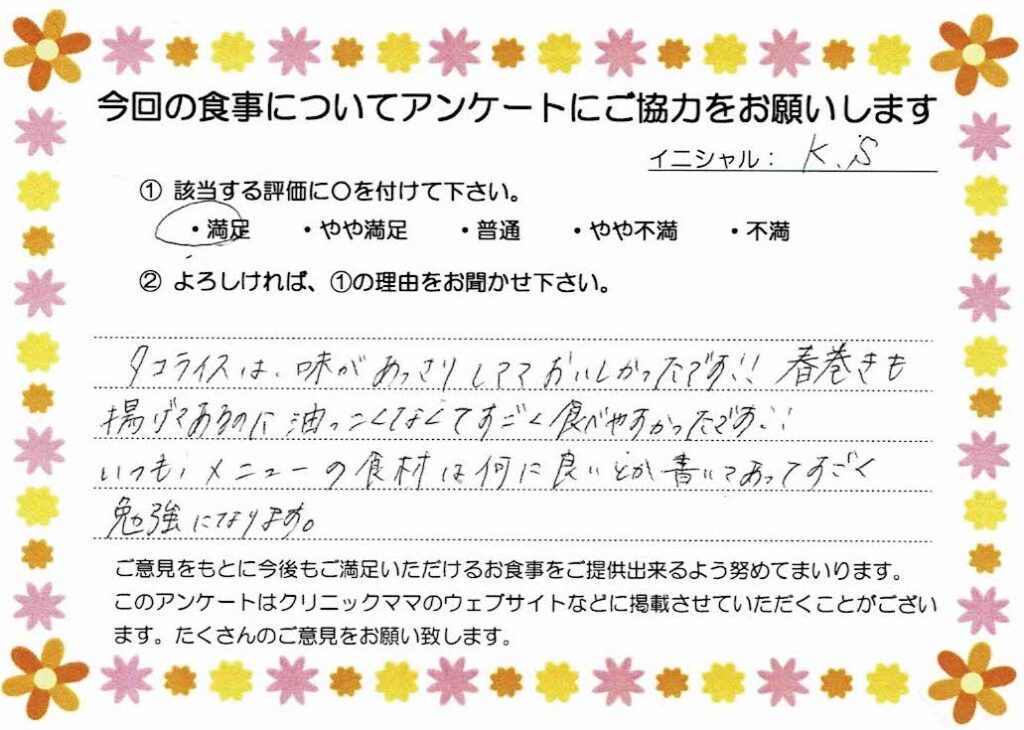 今回の食事についてアンケートにご協力をお願いします
イニシャル： K.S
① 該当する評価に〇を付けて下さい。
・満足 ・やや満足 ・普通 ・やや不満 ・不満
② よろしければ、①の理由をお聞かせ下さい。
タコライスは、味があっさりしてておいしかったです!! 春巻きも
揚げてあるのに油っこくなくてすごく食べやすかったです!!
いつも、メニューの食材は何に良いとか書いてあってすごく
勉強になります。
ご意見をもとに今後もご満足いただけるお食事をご提供出来るよう努めてまいります。
このアンケートはクリニックママのウェブサイトなどに掲載させていただくことがござい
ます。たくさんのご意見をお願い致します。